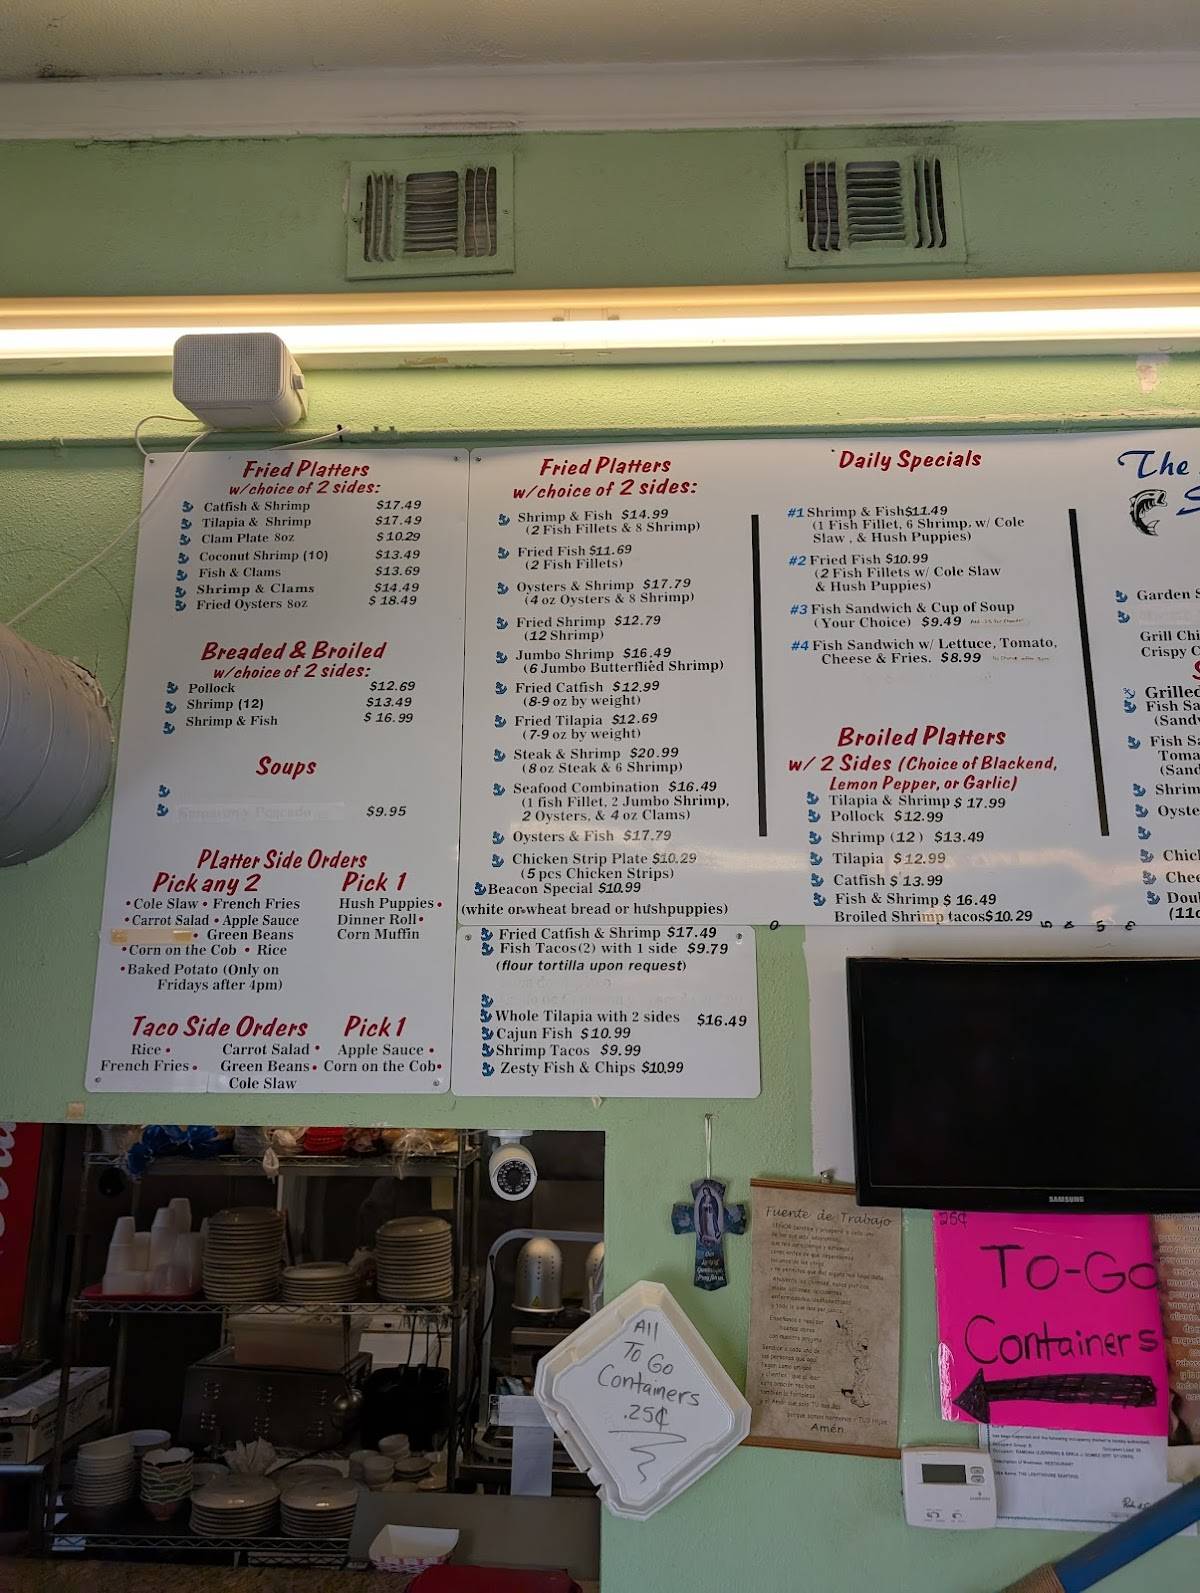 Fried Platters
w/choice of 2 sides:
Catfish & Shrimp $17.49
Tilapia & Shrimp $17.49
Clam Plate 8oz $10.29
Coconut Shrimp (10) $13.49
Fish & Clams $13.69
Shrimp & Clams $14.49
Fried Oysters 8oz $18.49
Breaded & Broiled
w/choice of 2 sides:
Pollock $12.69
Shrimp (12) $13.49
Shrimp & Fish $16.99
Soups
$9.95
Platter Side Orders
Pick any 2 Pick 1
•Cole Slaw • French Fries Hush Puppies •
•Carrot Salad • Apple Sauce Dinner Roll•
• Green Beans Corn Muffin
•Corn on the Cob • Rice
•Baked Potato (Only on
Fridays after 4pm)
Taco Side Orders Pick 1
Rice • Carrot Salad • Apple Sauce •
French Fries • Green Beans • Corn on the Cob•
Cole Slaw
Fried Platters
w/choice of 2 sides:
Shrimp & Fish $14.99
(2 Fish Fillets & 8 Shrimp)
Fried Fish $11.69
(2 Fish Fillets)
Oysters & Shrimp $17.79
(4 oz Oysters & 8 Shrimp)
Fried Shrimp $12.79
(12 Shrimp)
Jumbo Shrimp $16.49
(6 Jumbo Butterflied Shrimp)
Fried Catfish $12.99
(8-9 oz by weight)
Fried Tilapia $12.69
(7-9 oz by weight)
Steak & Shrimp $20.99
(8 oz Steak & 6 Shrimp)
Seafood Combination $16.49
(1 fish Fillet, 2 Jumbo Shrimp,
2 Oysters, & 4 oz Clams)
Oysters & Fish $17.79
Chicken Strip Plate $10.29
(5 pcs Chicken Strips)
Beacon Special $10.99
(white or wheat bread or hushpuppies)
Fried Catfish & Shrimp $17.49
Fish Tacos(2) with 1 side $9.79
(flour tortilla upon request)
Whole Tilapia with 2 sides $16.49
Cajun Fish $10.99
Shrimp Tacos $9.99
Zesty Fish & Chips $10.99
Daily Specials
#1 Shrimp & Fish$11.49
(1 Fish Fillet, 6 Shrimp, w/ Cole
Slaw , & Hush Puppies)
#2 Fried Fish $10.99
(2 Fish Fillets w/ Cole Slaw
& Hush Puppies)
#3 Fish Sandwich & Cup of Soup
(Your Choice) $9.49
#4 Fish Sandwich w/ Lettuce, Tomato,
Cheese & Fries. $8.99
Broiled Platters
w/ 2 Sides (Choice of Blackend,
Lemon Pepper, or Garlic)
Tilapia & Shrimp $17.99
Pollock $12.99
Shrimp (12) $13.49
Tilapia $12.99
Catfish $13.99
Fish & Shrimp $16.49
Broiled Shrimp tacos$10.29
The
Garden
Grill
Crispy
Grilled
Fish
Fish
SAMSUNG
Fuente de Trabajo
Amén
All
To Go
Containers
.25¢
25¢
To-Go
Containers